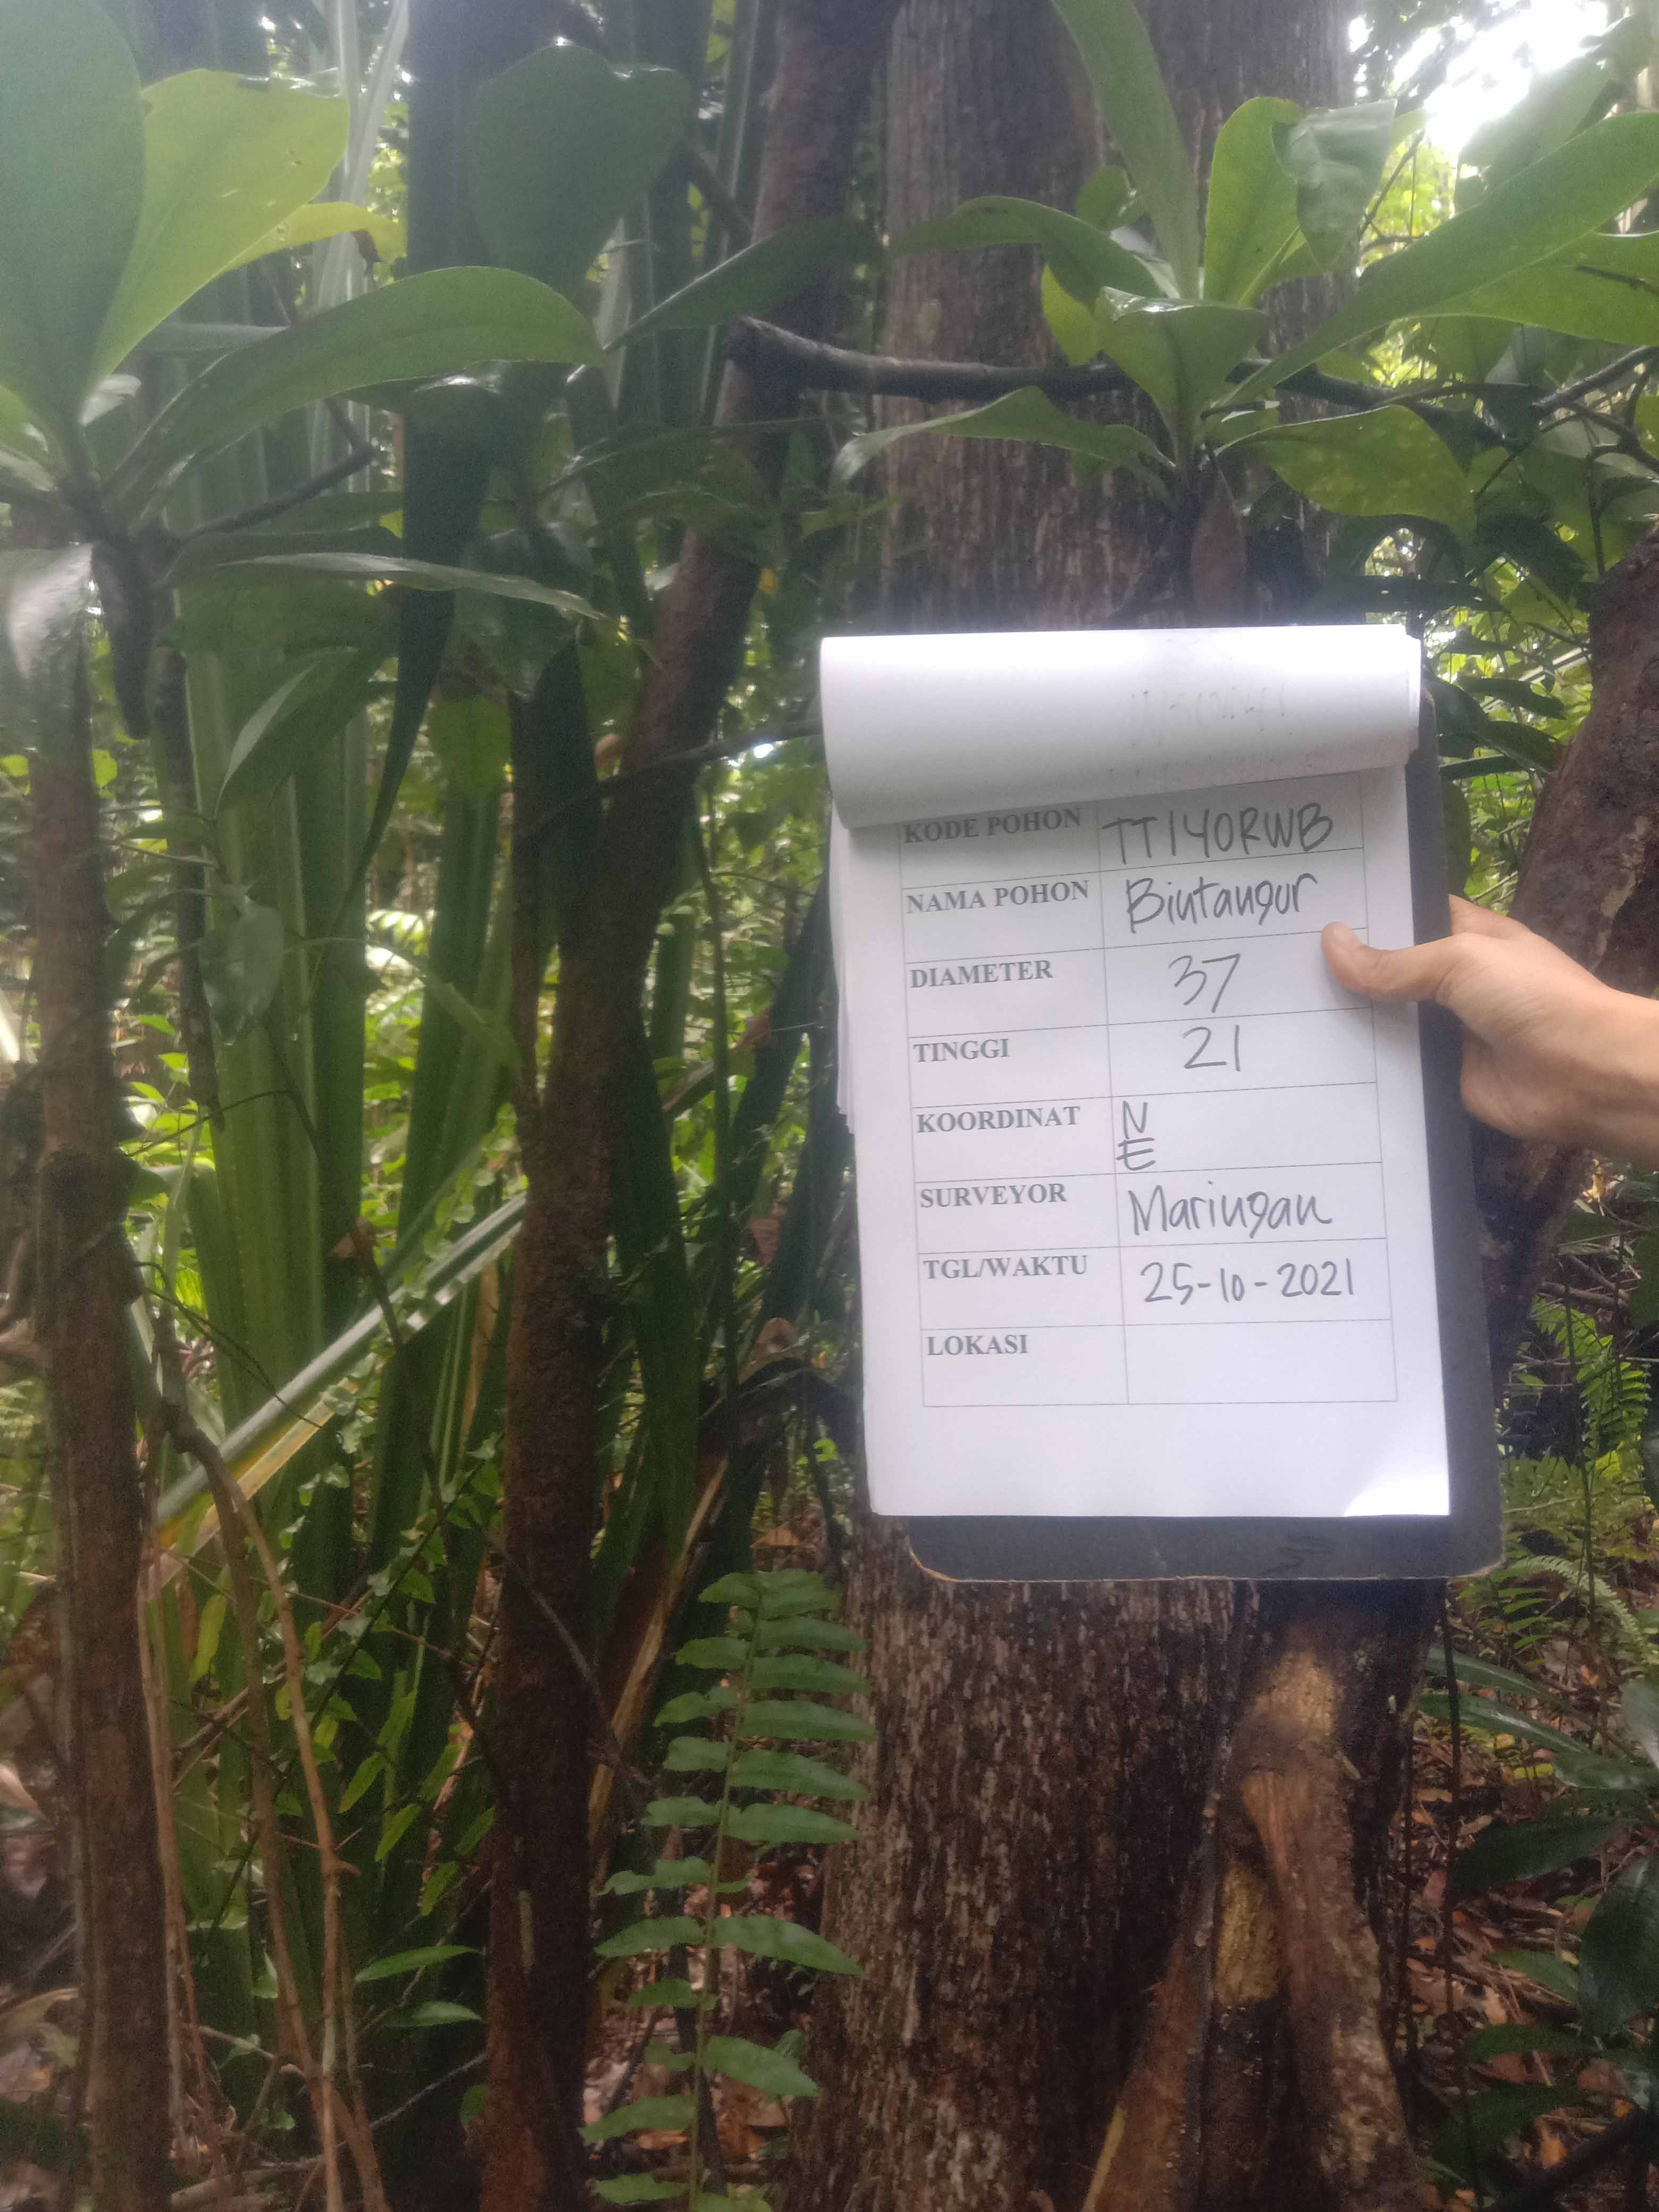 KODE POHON TT140RWB
NAMA POHON Bintangur
DIAMETER 37
TINGGI 21
KOORDINAT N
E
SURVEYOR Maringan
TGL/WAKTU 25-10-2021
LOKASI